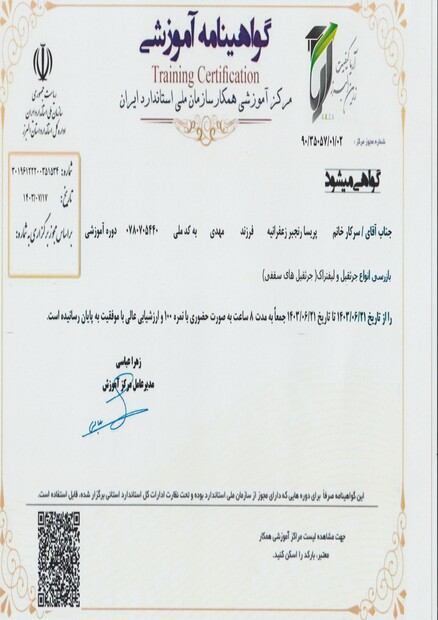 گواهینامه آموزشی
Training Certification
مرکز آموزشی همکار سازمان ملی استاندارد ایران
ریاست جمهوری
سازمان ملی استاندارد ایران
شماره مجوز مرکز:
۹۰/۳۵۰۵۷/۰۱/۰۲
شماره: ۳۰۱۹۶۱۲۲۲۰۰۳۵۱۵۳۴
تاریخ: ۱۴۰۳/۰۷/۱۷
براساس مجوز برگزاری به شماره:
گواهی میشود
جناب آقای / سرکار خانم پریسا رنجبر زعفرانیه فرزند مهدی به کد ملی ۰۷۸۰۷۰۵۴۴۰ دوره آموزشی
بازرسی انواع جرثقیل و لیفتراک( جرثقیل های سقفی)
را از تاریخ ۱۴۰۳/۰۶/۲۱ تا تاریخ ۱۴۰۳/۰۶/۲۱ جمعاً به مدت ۸ ساعت به صورت حضوری با نمره ۱۰۰ و ارزشیابی عالی با موفقیت به پایان رسانیده است.
زهرا عباسی
مدیرعامل مرکز آموزش
این گواهینامه صرفاً برای دوره هایی که دارای مجوز از سازمان ملی استاندارد بوده و تحت نظارت ادارات کل استاندارد استانی برگزار شده، قابل استفاده است.
جهت مشاهده لیست مراکز آموزشی همکار
معتبر، بارکد را اسکن کنید.